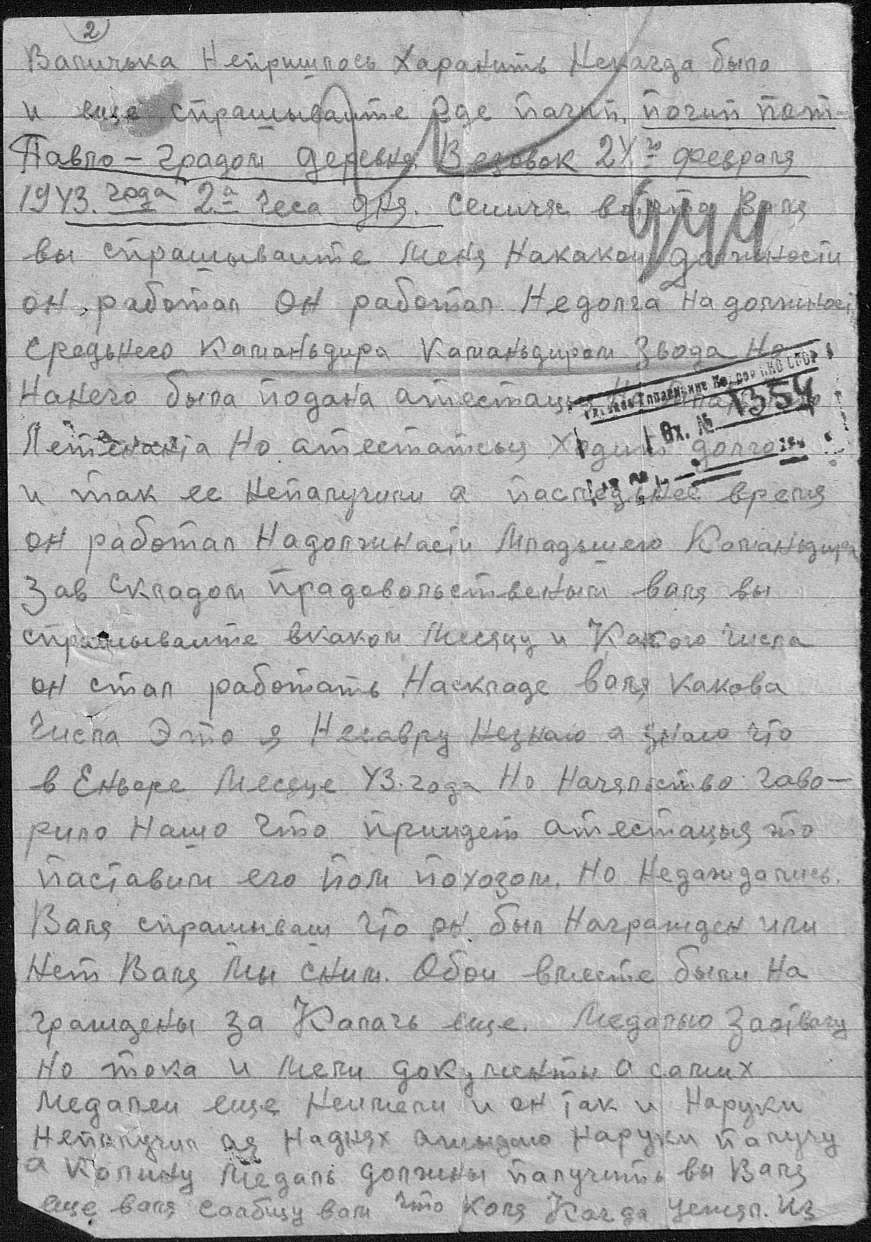 2
Валичька Непришлось Харанить Некагда было
и еще спрашываите где пагип, погип пот-
Павло-градом деревня Везовок 2Х го февраля
1943. года 2а Часа дня. сеичяс Валя
вы спрашываите Меня Накакои должности
он, работал Он работал Недолга на должност
Средьнего Каманьдира Каманьдиром Звода Но
Нанего была подана атестацыя
Летенанта Но атестатсыя Ходит долго
и так ее Непалучили а паследьнее время
он работал Надолжнасти Младьшего Каманьдира
Зав Складом Прадовольственым валя вы
спрашываите вкаком Месяцу и Какого Числа
он стал работать Наскладе валя Какова
Числа Это я Несавру Незнаю а знаю что
в Еньваре Месяце 43. года Но Начяльство гаво-
рило Нашо Что приидет атестацыя то
паставим его Пом похозом. Но Недаждались.
Валя спрашиваш Что он был Награжден или
Нет Валя Мы сним. Обои вместе были На
граждены за Капачь еще. Медалью Заотвагу
Но тока и Мели документы а самих
Медалеи еще Неимели и он так и Наруки
Непалучил ая Наднях ажыдаю Наруки палучу
а Колину Медаль должны палучить вы Валя
еще валя саабщу вам Что Коля Кагда уежял. Из
944
Главное Управление Кадров НКО СССР
Вх. №
1354